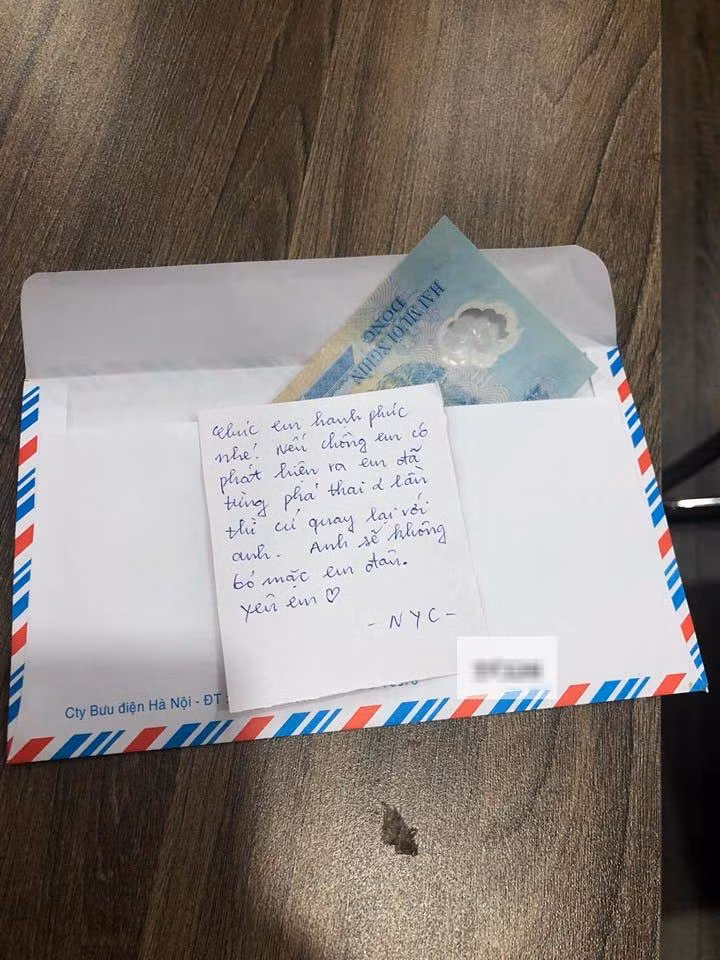 HAI MƯƠI NGHÌN
ĐỒNG
Chúc em hạnh phúc
nhé! Nếu chồng em có
phát hiện ra em đã
từng phá thai 2 lần
thì cứ quay lại với
anh. Anh sẽ không
bỏ mặc em đâu.
Yêu em ♡
- NYC -
Cty Bưu điện Hà Nội - ĐT